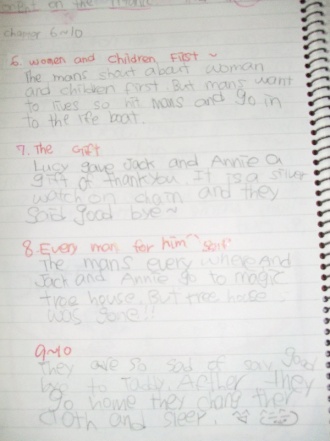 on the
chapter 6~10
6. women and children first ~
The mans shout about woman
and children first. But mans want
to lives so hit mans and go in
to the life boat.
7. The Gift
Lucy gave Jack and Annie a
gift of thankyou. It is a silver
watch on chain and they
said good bye~
8. Every man for him self
The mans every where And
Jack and Annie go to magic
tree house. But tree house
was gone!!
9~10
They are so sad of say good
bye to Tady. After They
go home they chang ther
cloth and sleep.